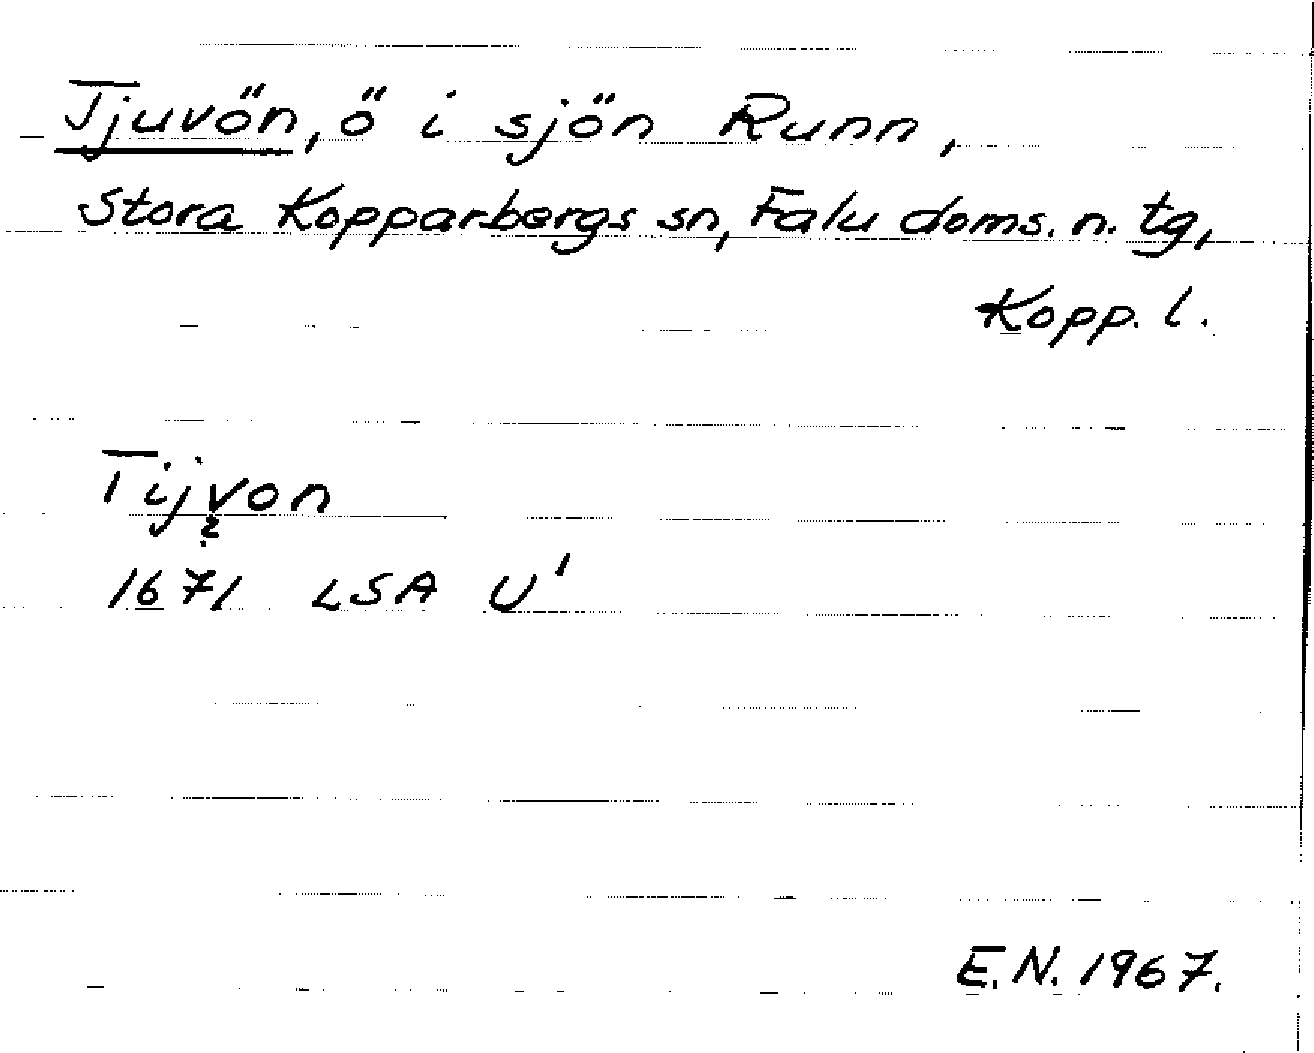 Tjuvön, ö i sjön Runn,
Stora Kopparbergs sn, Falu doms. n. tg,
Kopp. l.
Tijvon
?
1671 LSA U'
E.N. 1967.